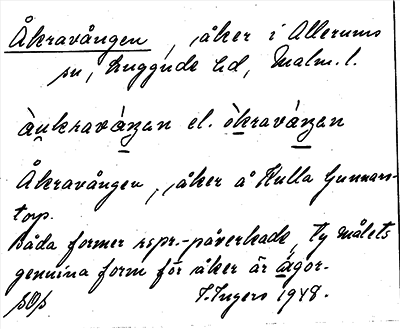 Åkravången, åker i Allerums
sn, Luggude hd, Malm. l.
àu̯kraváŋen el. òkraváŋen
Åkravången, åker å Kulla Gunnars-
torp.
Båda former rspr.-påverkade, ty målets
genuina form för åker är ágor.
I. Ingers 1948.